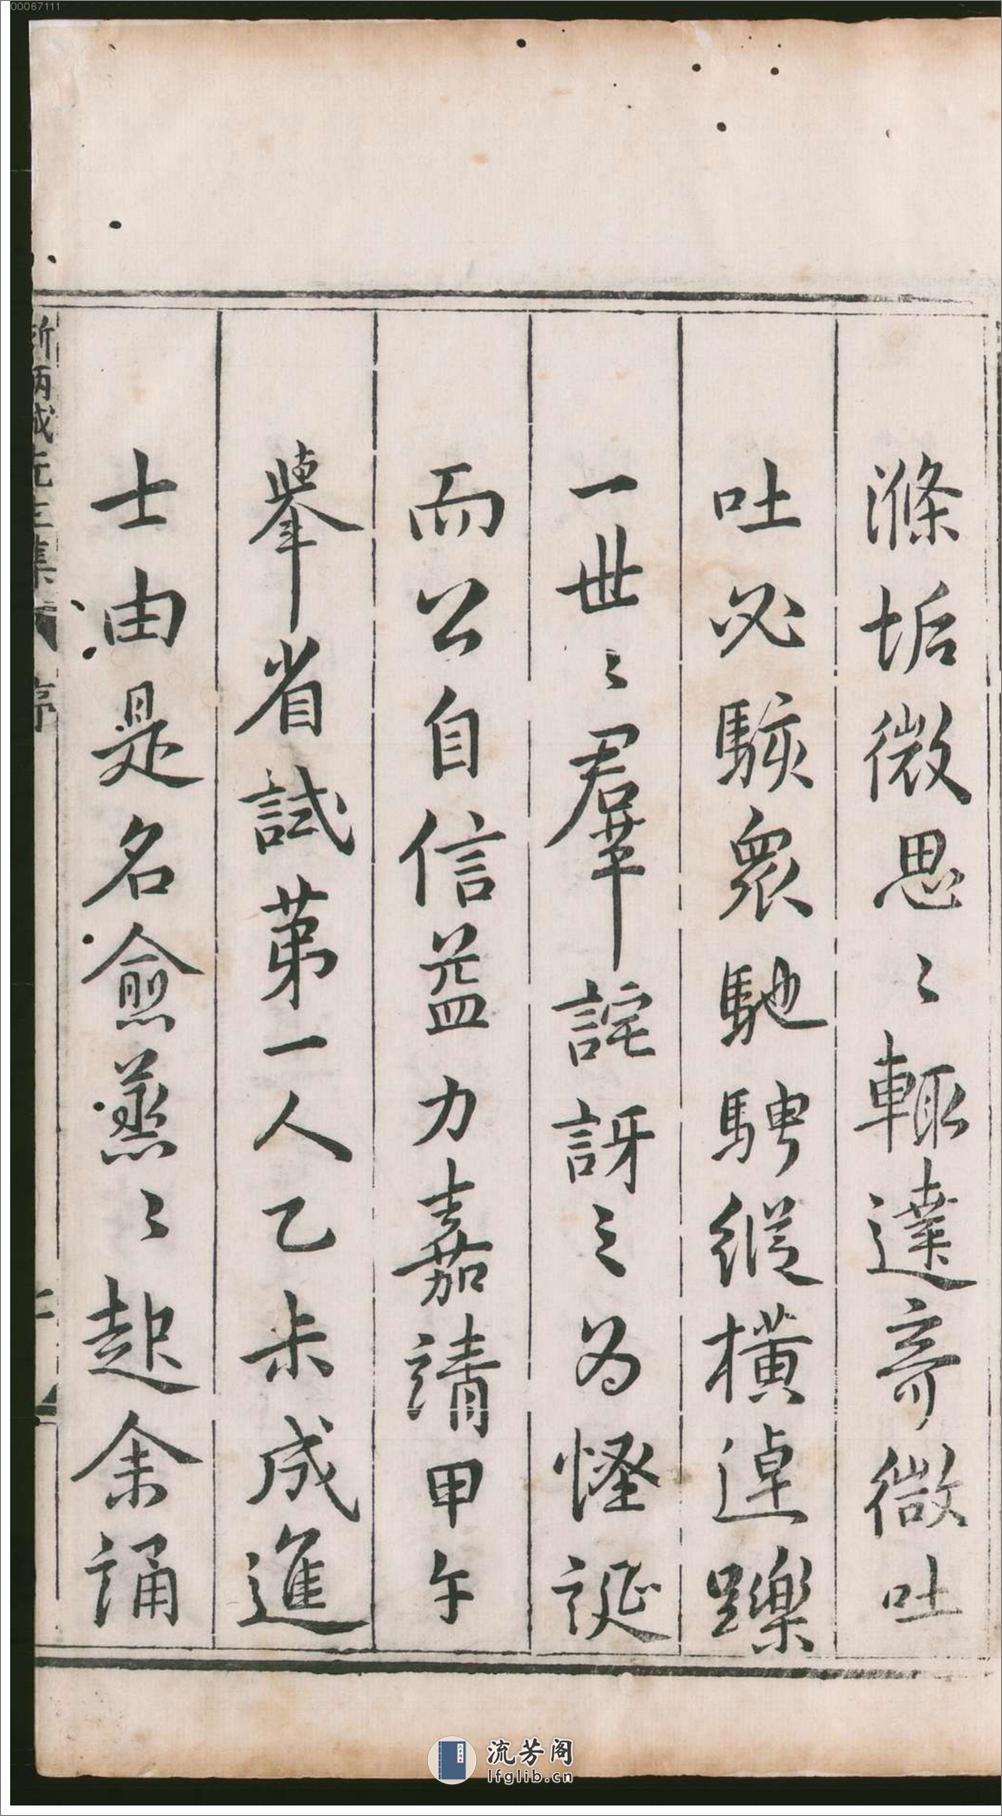 滌垢微思〻輒達竒微吐
吐必駭衆馳騁縱橫逴躒
一世〻羣詫訝之為慳誕
而公自信益力嘉靖甲午
舉省試第一人乙未成進
士由是名愈蒸〻起余誦
序
00067111
流芳阁
lfglib.cn